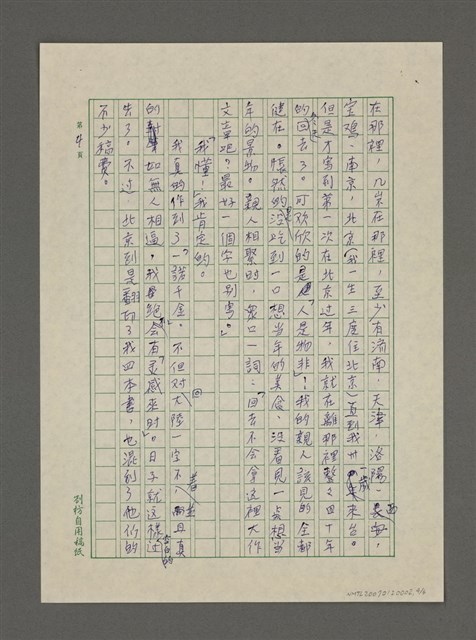 在那裡，几岁在那裡，至少有濟南，天津，洛陽，長安，西
宝鸡、南京、北京（我一生三度住北京）直到我卅一歲來台。
但是才寫到第一次在北京过年，我就在離那裡整々四十年
的今天回去了。可欢欣的是「人是物非」！我的親人該見的全都
健在。悵然的是沒吃到一口想当年的美食、没看見一点想当
年的景物。親人相聚时，衆口一詞：「回去不会會这裡大作
文章吧？最好一個字也別寫。」
「我懂！」我肯定的。
我真的作到了「一諾千金」。不但对大陸一字不着，並且真
的如無人相逼，我是絕不会「有灵感來时」。日子就这樣过
去了。不过，北京到是翻印了我四本書，也混到了他们的
不少稿费。
第 4 頁
劉枋自用稿紙